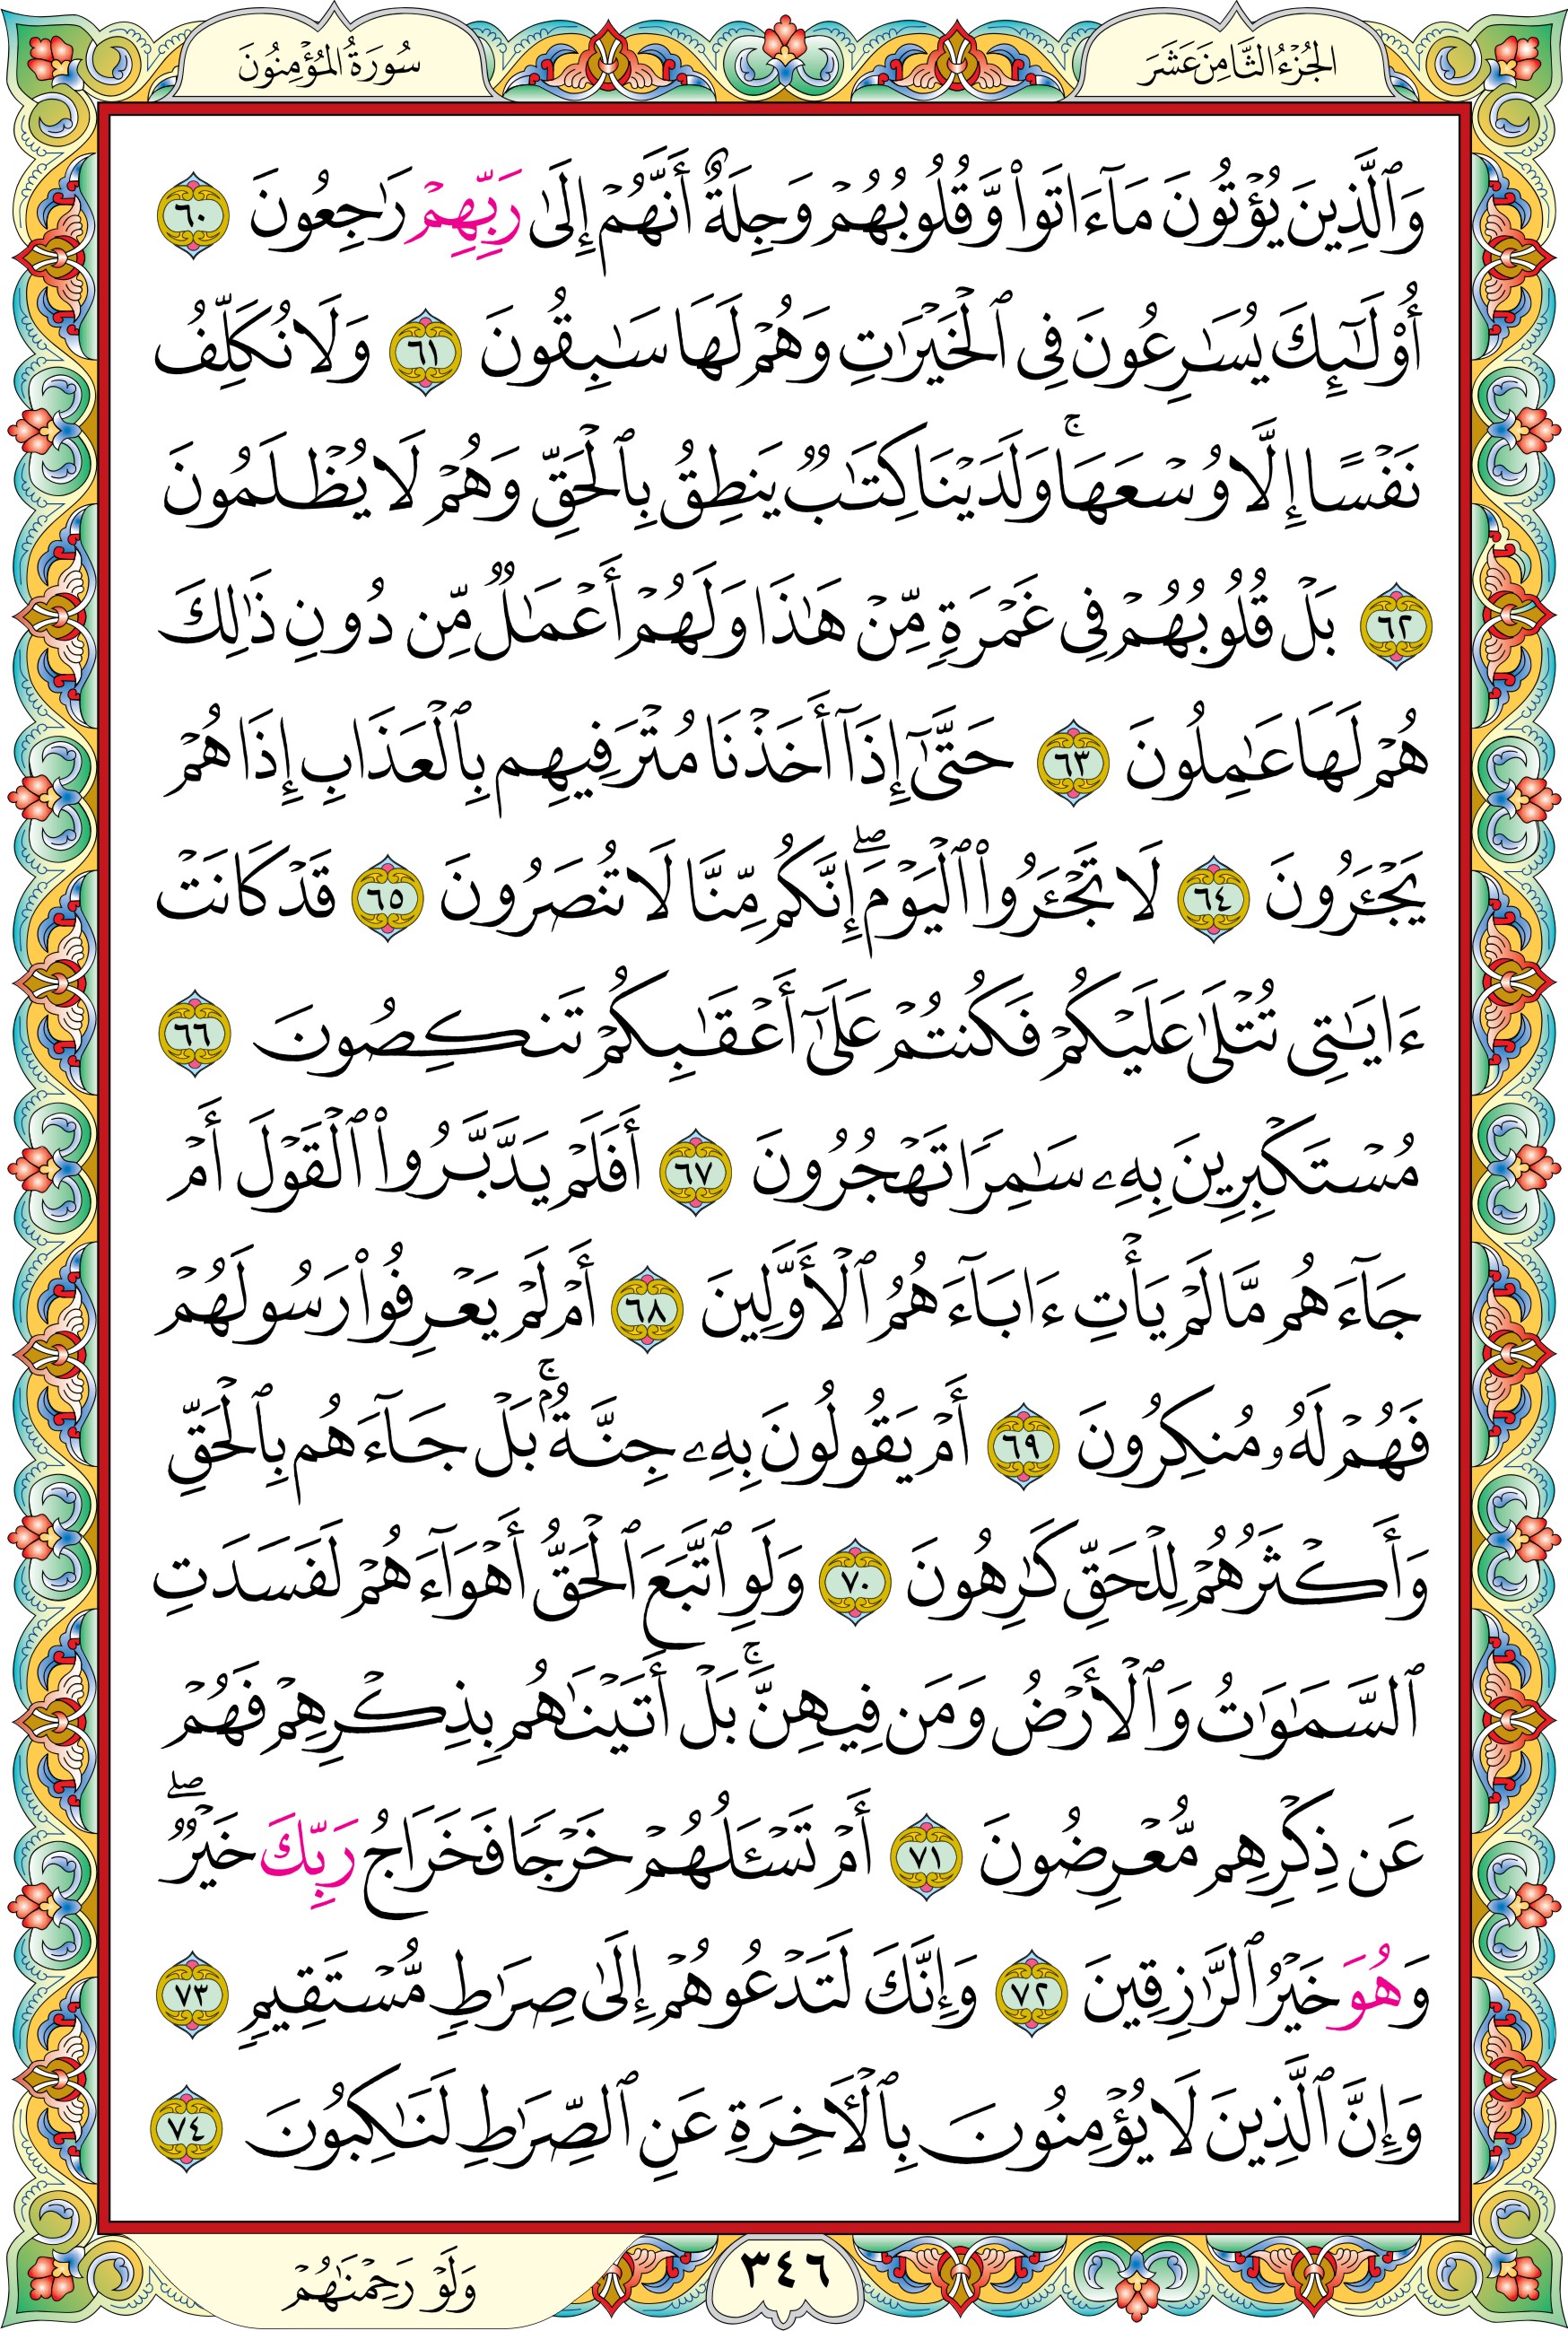 الجُزْءُ الثَّامِنَ عَشَرَ
سُورَةُ المُؤْمِنُونَ
وَٱلَّذِينَ يُؤْتُونَ مَآ ءَاتَوا۟ وَّقُلُوبُهُمْ وَجِلَةٌ أَنَّهُمْ إِلَىٰ رَبِّهِمْ رَٰجِعُونَ ٦٠
أُو۟لَـٰٓئِكَ يُسَـٰرِعُونَ فِى ٱلْخَيْرَٰتِ وَهُمْ لَهَا سَـٰبِقُونَ ٦١ وَلَا نُكَلِّفُ
نَفْسًا إِلَّا وُسْعَهَا ۚ وَلَدَيْنَا كِتَـٰبٌ يَنطِقُ بِٱلْحَقِّ وَهُمْ لَا يُظْلَمُونَ
٦٢ بَلْ قُلُوبُهُمْ فِى غَمْرَةٍ مِّنْ هَـٰذَا وَلَهُمْ أَعْمَـٰلٌ مِّن دُونِ ذَٰلِكَ
هُمْ لَهَا عَـٰمِلُونَ ٦٣ حَتَّىٰٓ إِذَآ أَخَذْنَا مُتْرَفِيهِم بِٱلْعَذَابِ إِذَا هُمْ
يَجْـَٔرُونَ ٦٤ لَا تَجْـَٔرُوا۟ ٱلْيَوْمَ ۖ إِنَّكُم مِّنَّا لَا تُنصَرُونَ ٦٥ قَدْ كَانَتْ
ءَايَـٰتِى تُتْلَىٰ عَلَيْكُمْ فَكُنتُمْ عَلَىٰٓ أَعْقَـٰبِكُمْ تَنكِصُونَ ٦٦
مُسْتَكْبِرِينَ بِهِۦ سَـٰمِرًا تَهْجُرُونَ ٦٧ أَفَلَمْ يَدَّبَّرُوا۟ ٱلْقَوْلَ أَمْ
جَآءَهُم مَّا لَمْ يَأْتِ ءَابَآءَهُمُ ٱلْأَوَّلِينَ ٦٨ أَمْ لَمْ يَعْرِفُوا۟ رَسُولَهُمْ
فَهُمْ لَهُۥ مُنكِرُونَ ٦٩ أَمْ يَقُولُونَ بِهِۦ جِنَّةٌۢ ۚ بَلْ جَآءَهُم بِٱلْحَقِّ
وَأَكْثَرُهُمْ لِلْحَقِّ كَـٰرِهُونَ ٧٠ وَلَوِ ٱتَّبَعَ ٱلْحَقُّ أَهْوَآءَهُمْ لَفَسَدَتِ
ٱلسَّمَـٰوَٰتُ وَٱلْأَرْضُ وَمَن فِيهِنَّ ۚ بَلْ أَتَيْنَـٰهُم بِذِكْرِهِمْ فَهُمْ
عَن ذِكْرِهِم مُّعْرِضُونَ ٧١ أَمْ تَسْـَٔلُهُمْ خَرْجًا فَخَرَاجُ رَبِّكَ خَيْرٌ ۖ
وَهُوَ خَيْرُ ٱلرَّٰزِقِينَ ٧٢ وَإِنَّكَ لَتَدْعُوهُمْ إِلَىٰ صِرَٰطٍ مُّسْتَقِيمٍ ٧٣
وَإِنَّ ٱلَّذِينَ لَا يُؤْمِنُونَ بِٱلْـَٔاخِرَةِ عَنِ ٱلصِّرَٰطِ لَنَـٰكِبُونَ ٧٤
٣٤٦
وَلَوْ رَحِمْنَـٰهُمْ